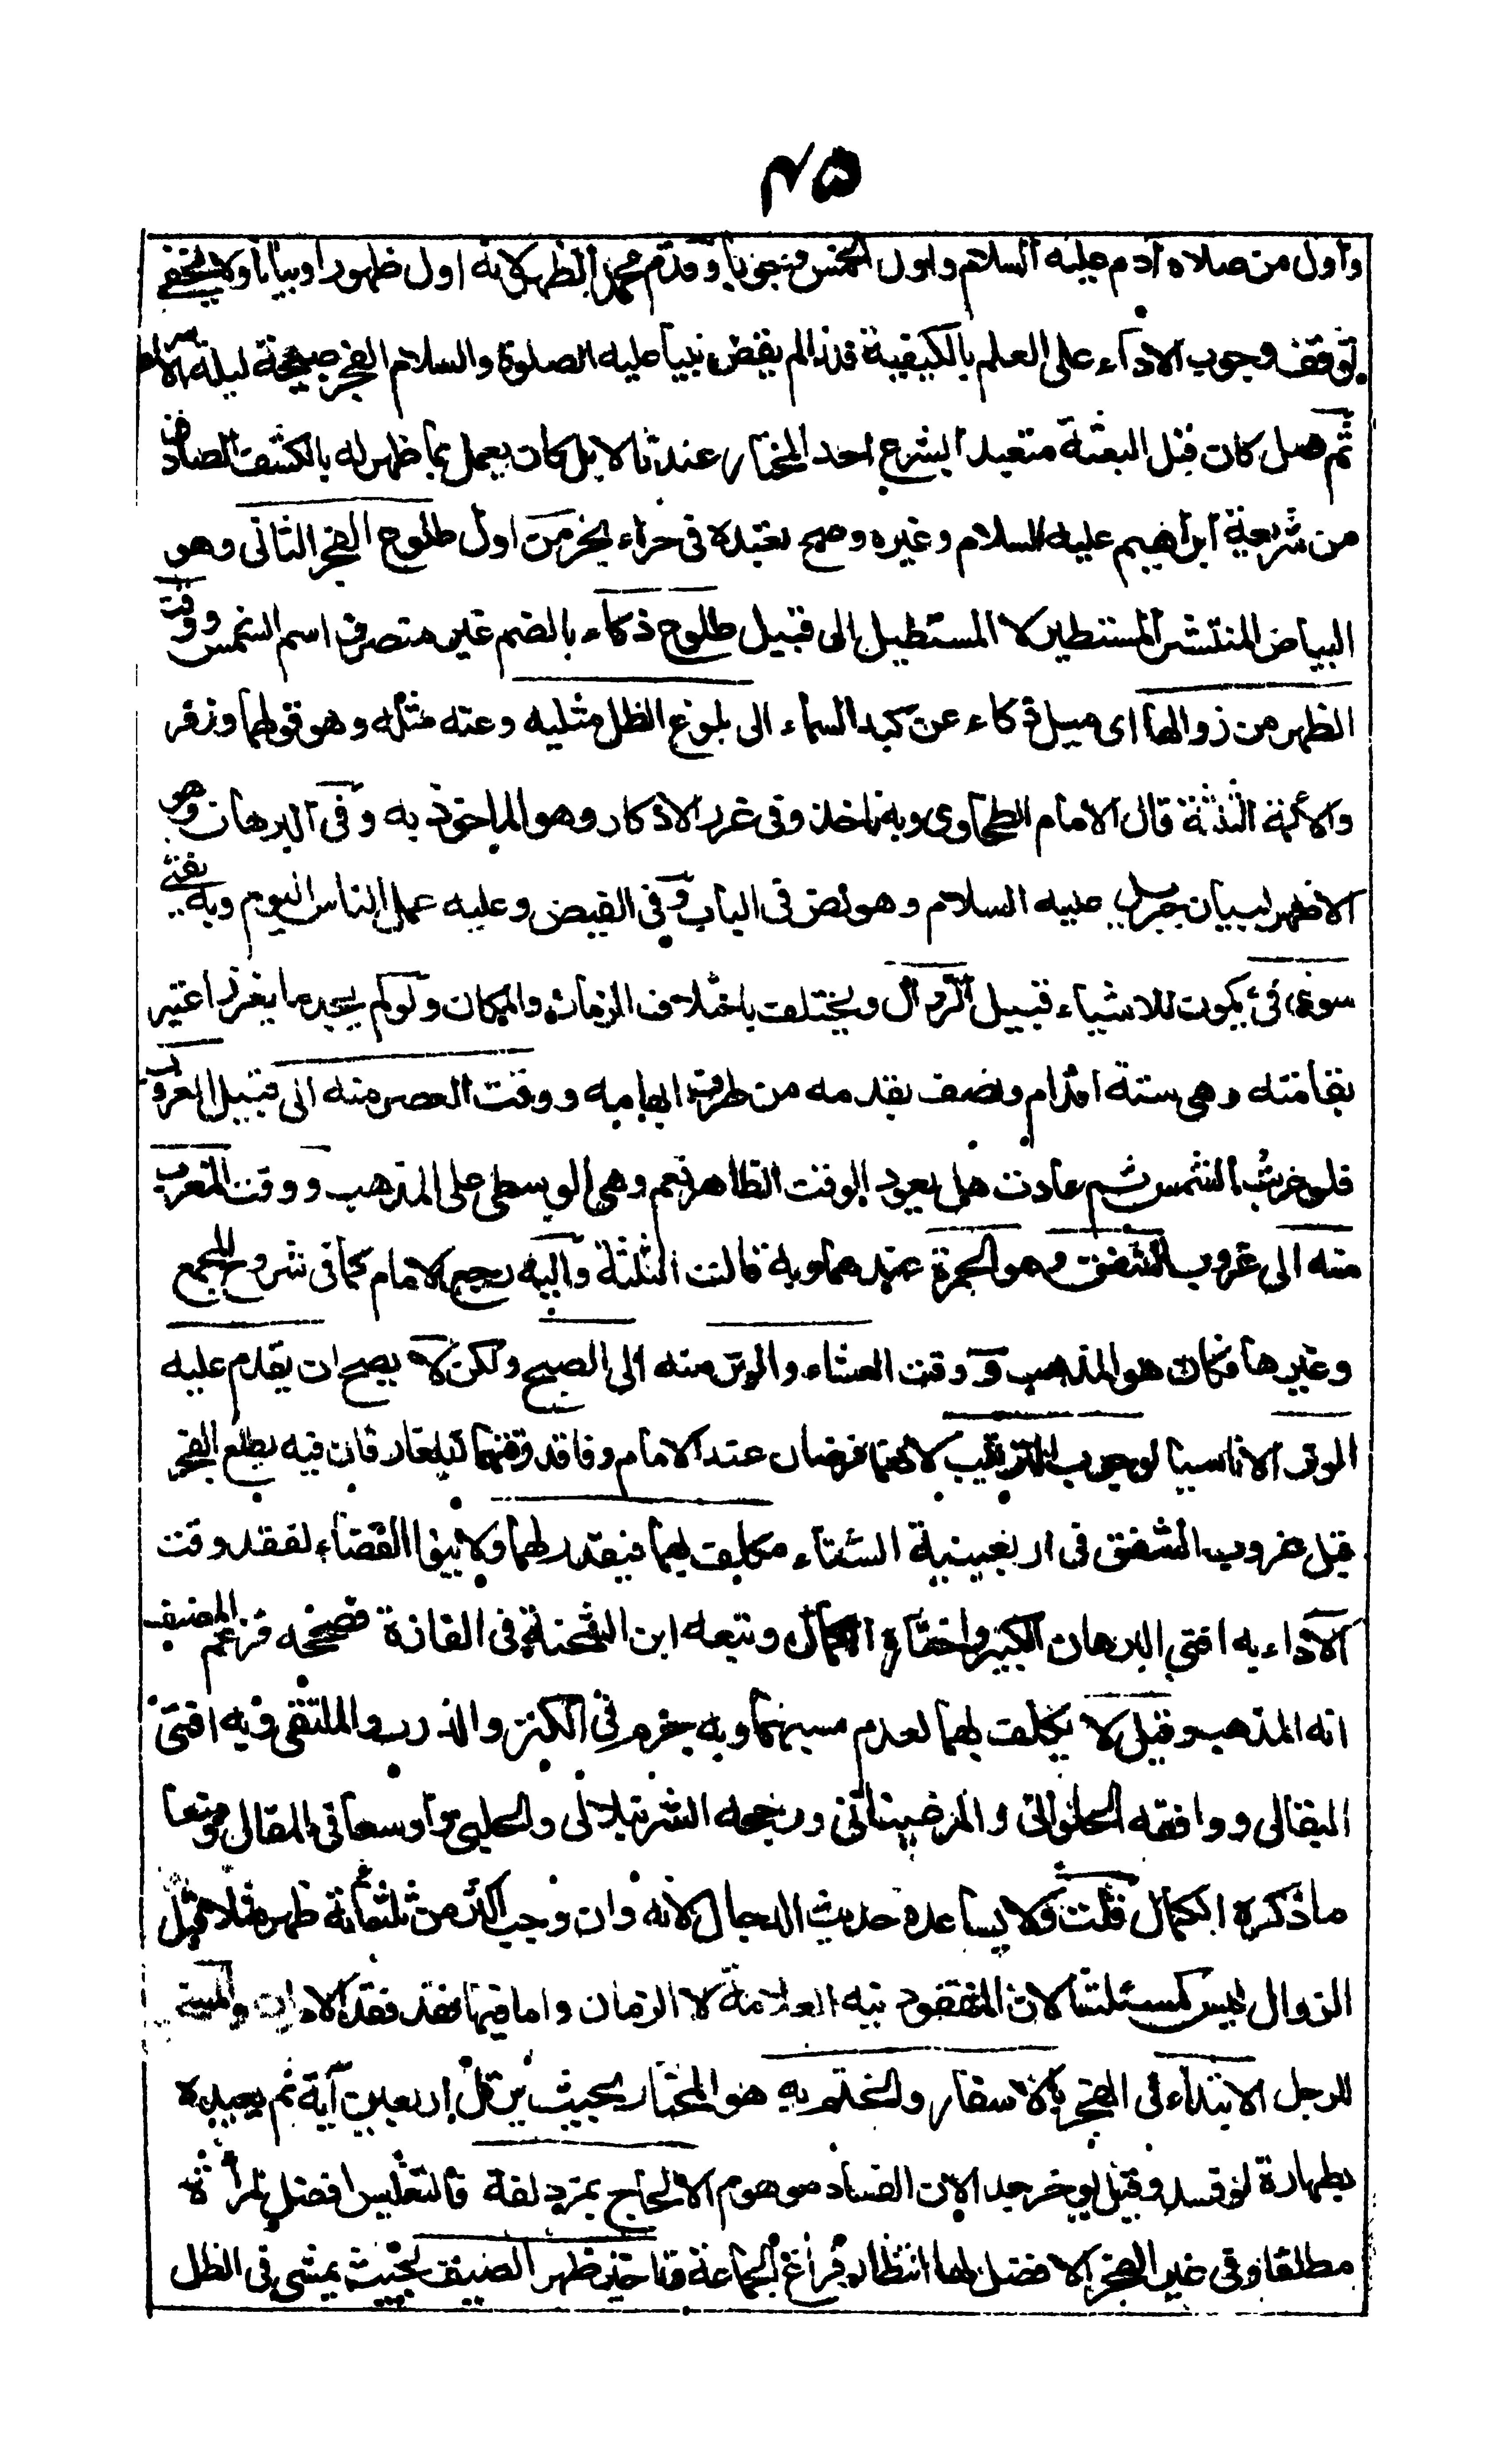 ٤٥
واول من صلاه آدم عليه السلام واول الخمس وجوبا وقدم محمد الظهر لانه اول ظهورا وبيانا ولا يخفى
توقف وجوب الاداء على العلم بالكيفية فلذا لم يقض نبينا عليه الصلوة والسلام الفجر صبيحة ليلة الاسرا
ثم هل كان قبل البعثة متعبدا بشرع احد المختار عندنا لا بل كان يعمل بما ظهر له بالكشف الصادق
من شريعة ابراهيم عليه السلام وغيره وصح تعبده في حراء بحر من اول طلوع الفجر الثاني وهو
البياض المنتشر المستطير لا المستطيل الى قبيل طلوع ذكاء بالضم غير منصرف اسم الشمس ووقت
الظهر من زوالها اى ميل ذكاء عن كبد السماء الى بلوغ الظل مثليه وعنه مثله وهو قولهما وزفر
والائمة الثلثة قال الامام الطحاوى وبه ناخذ وفى غرر الاذكار وهو الماخوذ به وفى البرهان وهو
الاظهر لبيان جبريل عليه السلام وهو نص فى الباب وفى الفيض وعليه عمل الناس اليوم وبه يفتى
سوى فئ يكون للاشياء قبيل الزوال ويختلف باختلاف الزمان والمكان ولو لم يجد ما يغرز اعتبر
بقامته وهى ستة اقدام ونصف بقدمه من طرف ابهامه ووقت العصر منه الى قبيل الغروب
فلو غربت الشمس ثم عادت هل يعود الوقت الظاهر نعم وهى الوسطى على المذهب ووقت المغرب
منه الى غروب الشفق وهو الحمرة عندهما وبه قالت الثلثة واليه رجع الامام كما فى شروح المجمع
وغيرها فكان هو المذهب و وقت العشاء والوتر منه الى الصبح ولكن لا يصح ان يقدم عليه
الوتر الا ناسيا لوجوب الترتيب لانهما فرضان عند الامام وفاقد وقتهما كبلغار فان فيه يطلع الفجر
قبل غروب الشفق فى اربعينية الشتاء مكلف بهما فيقدر لهما ولا ينوى القضاء لفقد وقت
الاداء به افتى البرهان الكبير واختاره الكمال وتبعه ابن الشحنة فى الغازه فصححه فزعم المصنف
انه المذهب وقيل لا يكلف بهما لعدم سببهما وبه جزم فى الكنز والدرر والملتقى وبه افتى
البقالى ووافقه الحلوانى والمرغينانى ورجحه الشرنبلالى والحلبى واوسعا فى المقال ومنعا
ما ذكره الكمال قلت ولا يساعده حديث الدجال لانه وان وجب اكثر من ثلثمائة ظهر مثلا قبل
الزوال ليس كمسئلتنا لان المفقود فيه العلامة لا الزمان واما فيها فقد فقد الامران والمستحب
للرجل الابتداء فى الفجر بالاسفار والختم به هو المختار بحيث يرتل اربعين آية ثم يعيده
بطهارة لو فسد وقيل يوخر جدا لان الفساد موهوم الا لحاج بمزدلفة فالتغليس افضل لمراة
مطلقا وفى غير الفجر الافضل لها انتظار فراغ الجماعة وتاخير ظهر الصيف بحيث يمشى فى الظل